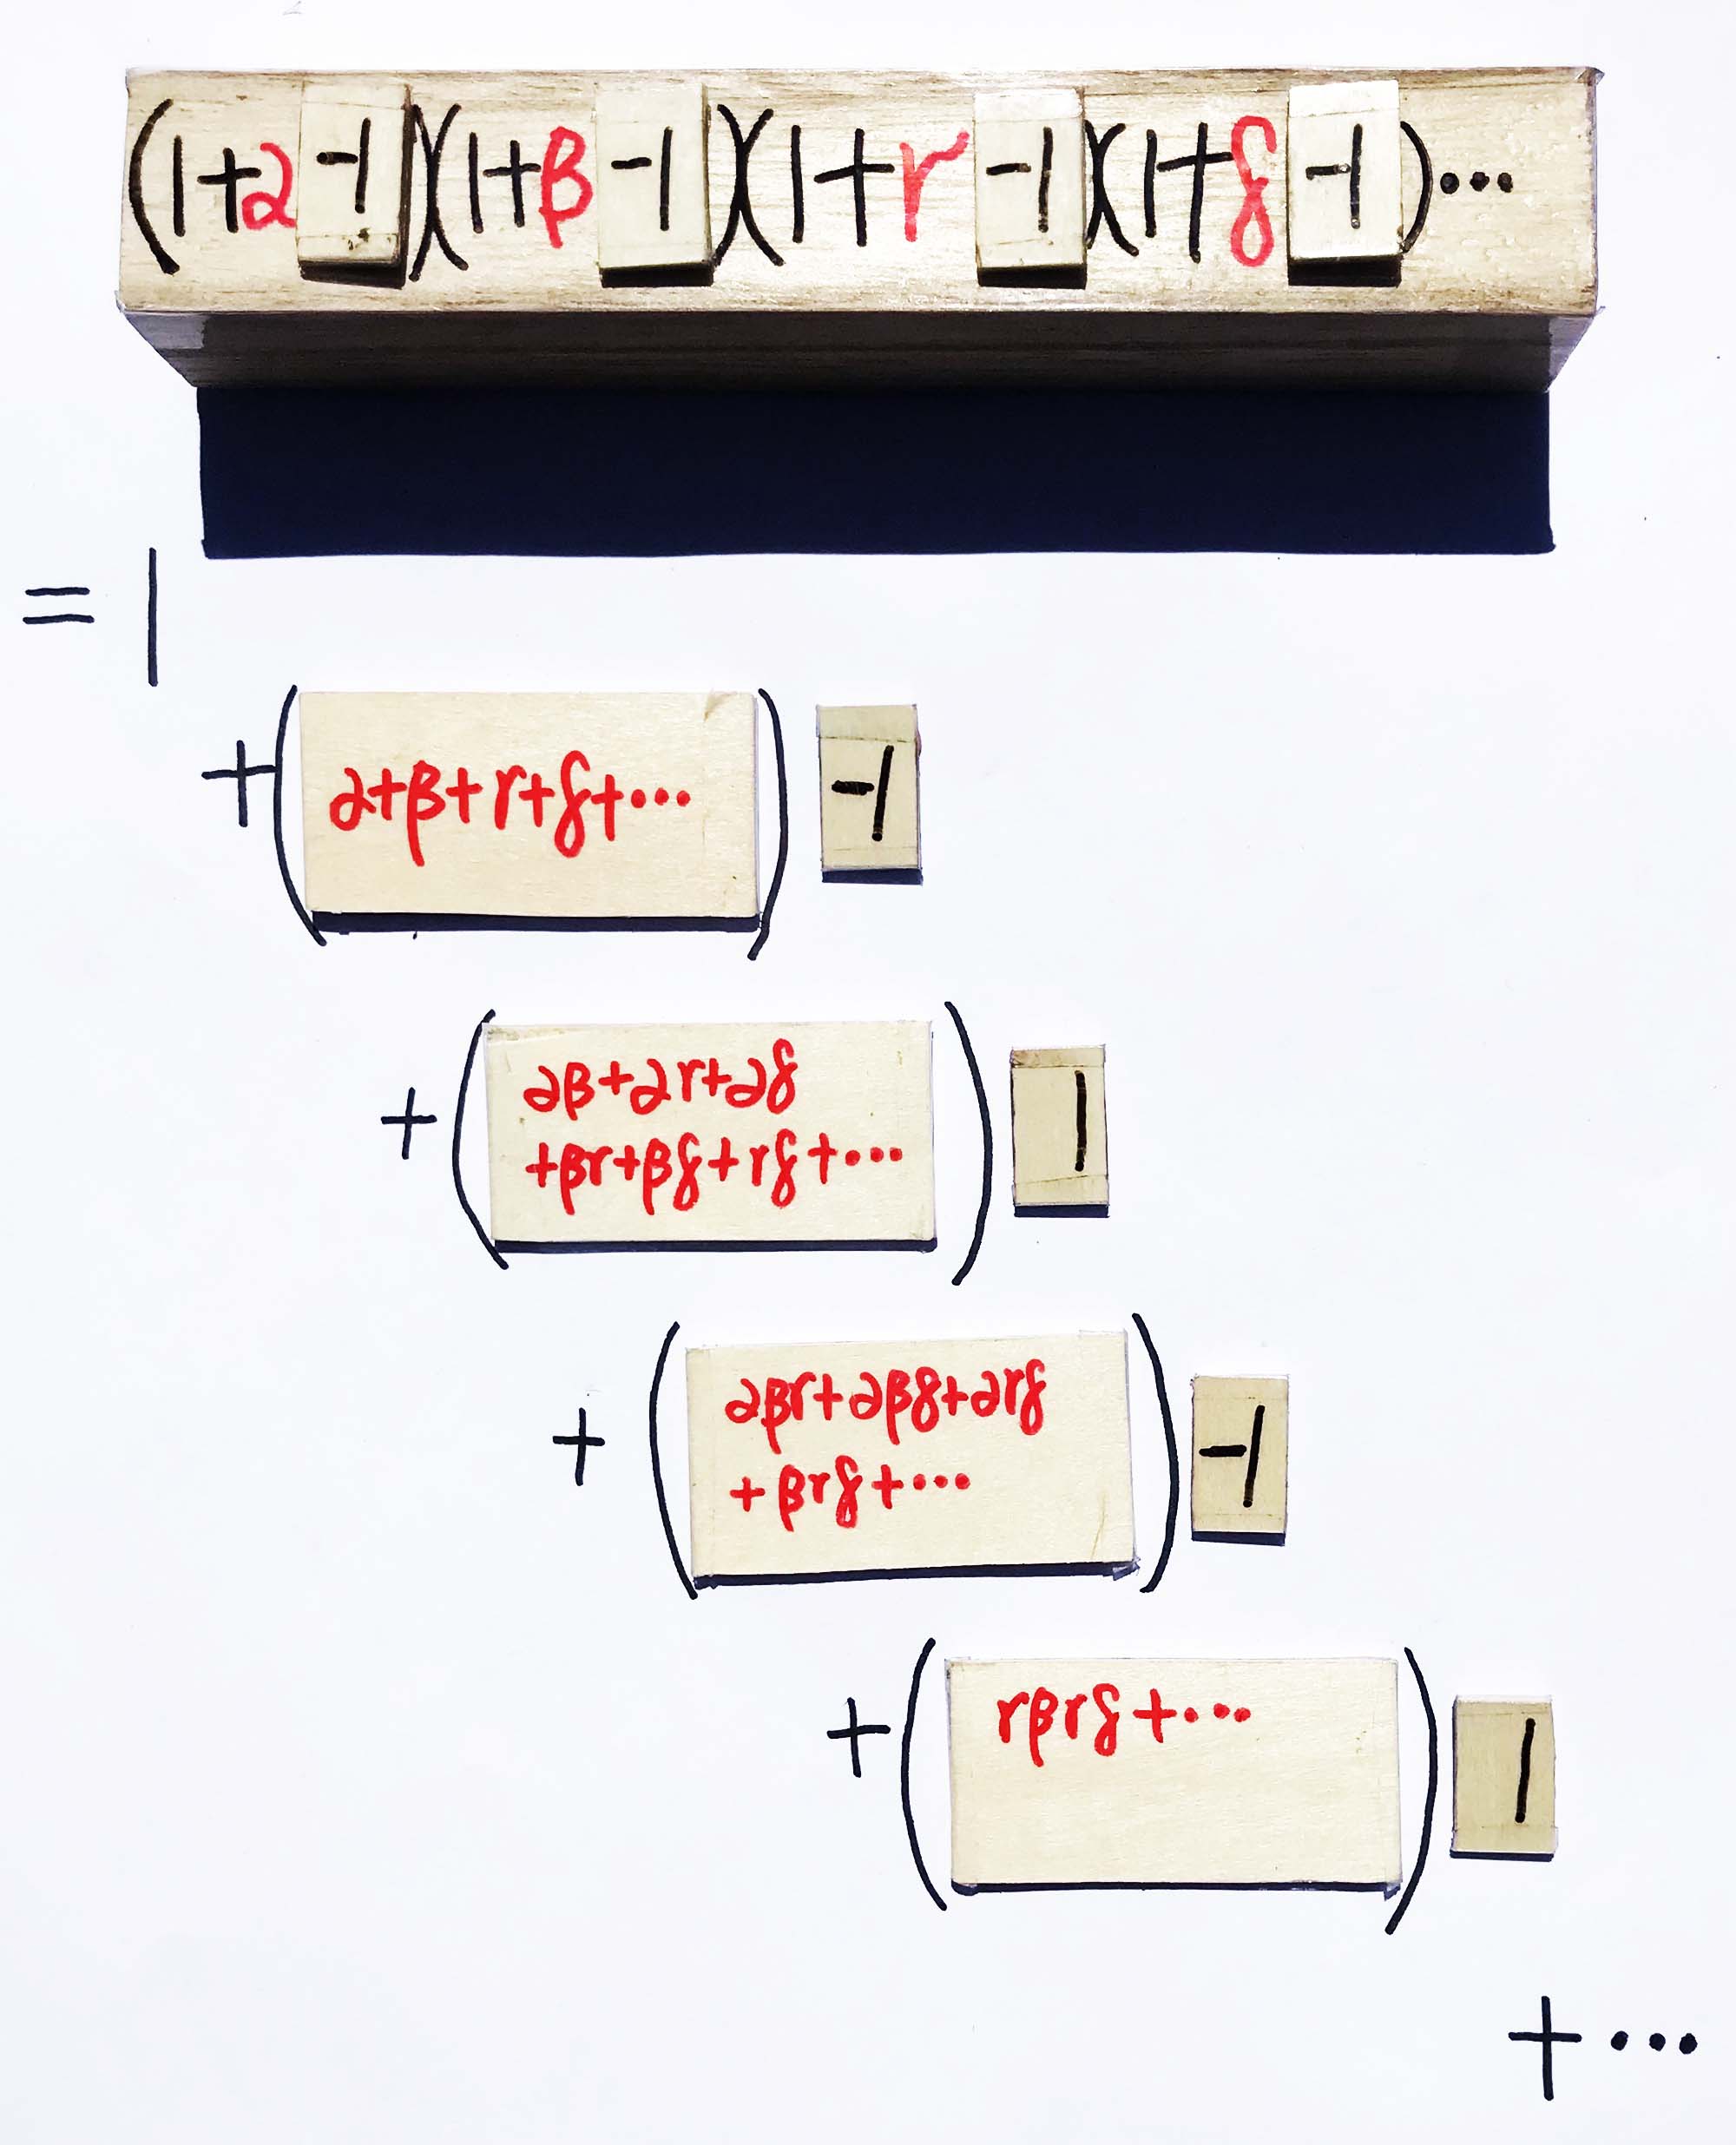 (1+α -1)(1+β -1)(1+γ -1)(1+δ -1)...
= 1
+(α+β+γ+δ+...) -1
+(αβ+αγ+αδ
+βγ+βδ+γδ+...) 1
+(αβγ+αβδ+αγδ
+βγδ+...) -1
+(γβγδ+...) 1
+...